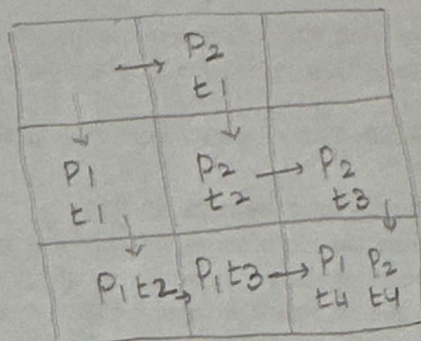 → P2
t1
P1 P2 → P2
t1 t2 t3
P1t2 → P1t3 → P1 P2
t4 t4